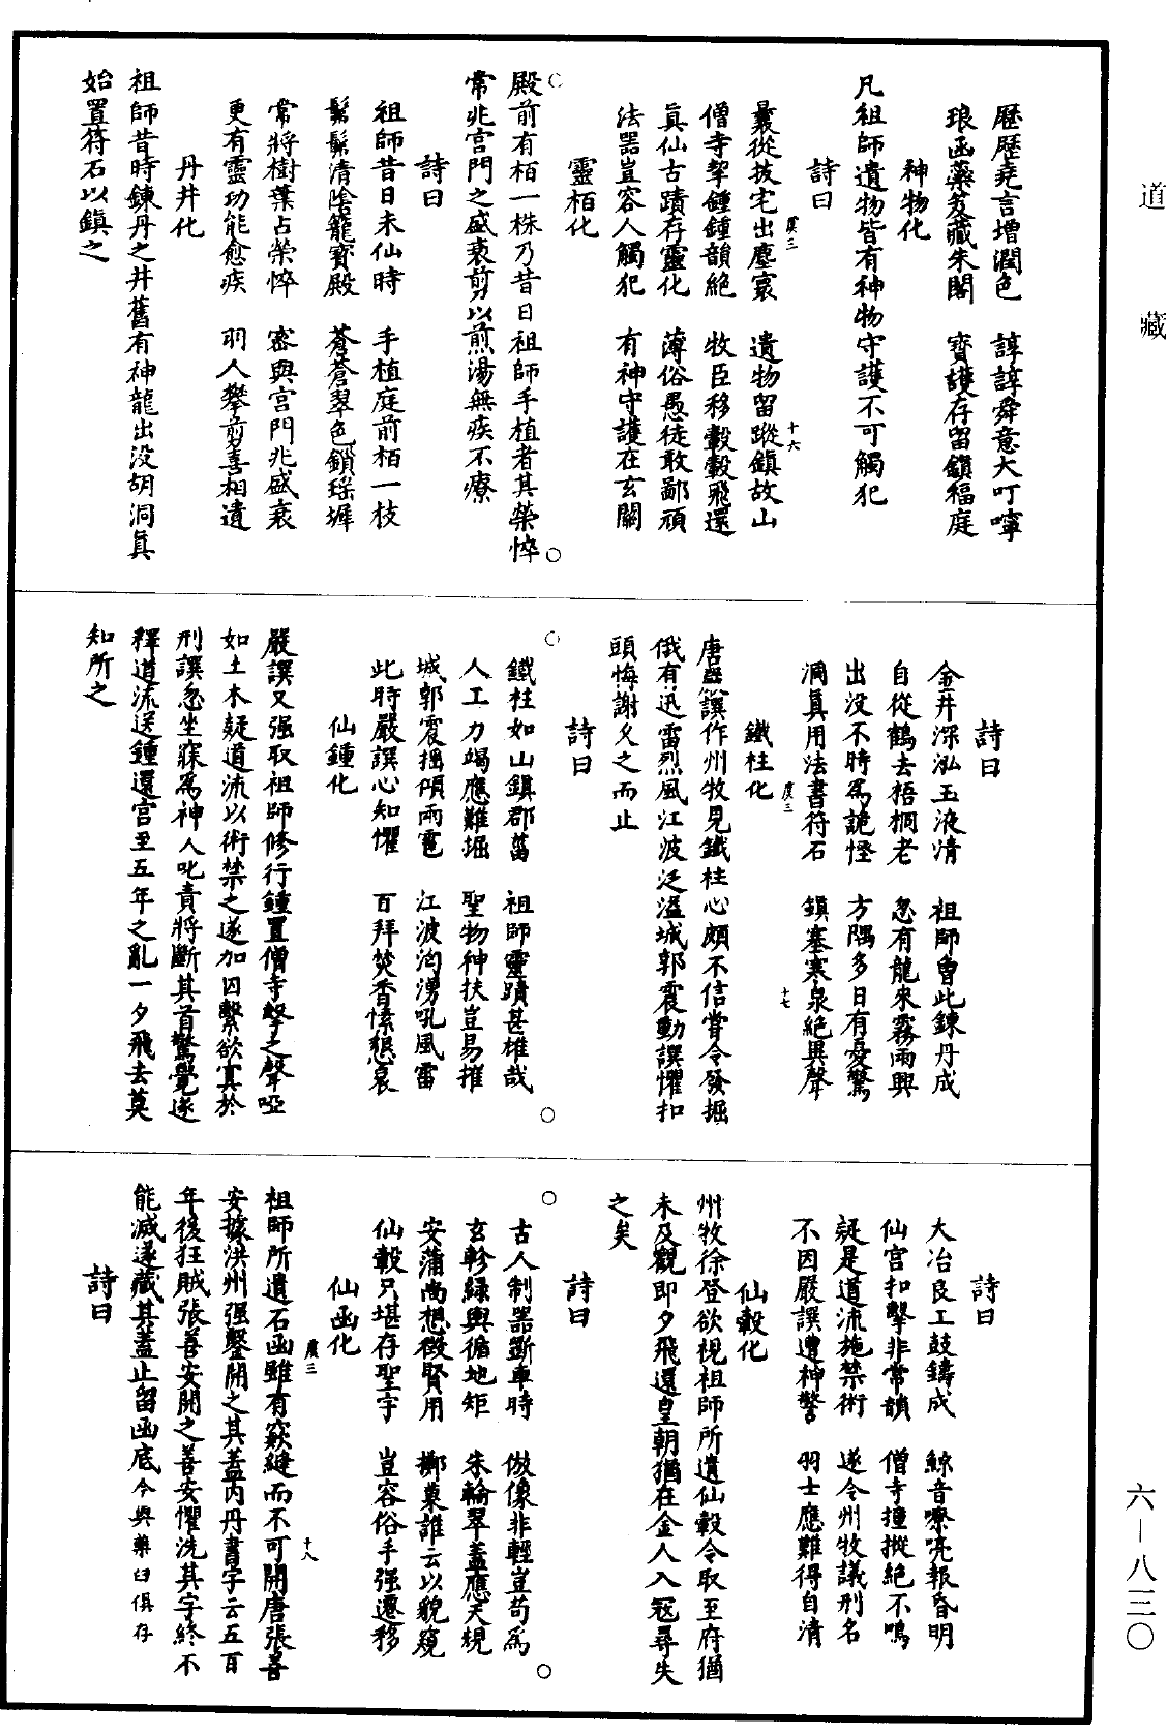 道藏
歷歷堯言增潤色　諄諄舜意大叮嚀
琅函蘂笈藏朱閣　寶護存留鎮福庭
神物化
凡祖師遺物皆有神物守護不可觸犯
詩曰
虞三　十六
曩從拔宅出塵寰　遺物留蹤鎮故山
僧寺挈鍾鍾韻絕　牧臣移轂轂飛還
真仙古蹟存靈化　薄俗愚徒敢鄙頑
法器豈容人觸犯　有神守護在玄關
靈栢化
殿前有栢一株乃昔日祖師手植者其榮悴
常兆宮門之盛衰剪以煎湯無疾不療
詩曰
祖師昔日未仙時　手植庭前栢一枝
鬅鬆清陰籠寶殿　蒼蒼翠色鎖瑤墀
常將樹葉占榮悴　密與宮門兆盛衰
更有靈功能愈疾　羽人攀剪喜相遺
丹井化
祖師昔時鍊丹之井舊有神龍出没胡洞真
始置符石以鎮之
詩曰
金井深泓玉液清　祖師曾此鍊丹成
自從鶴去梧桐老　忽有龍來霧雨興
出没不時為詭怪　方隅多日有憂驚
洞真用法書符石　鎮塞寒泉絕異聲
虞三　十七
鐵柱化
唐嚴譔作州牧見鐵柱心頗不信嘗令發掘
俄有迅雷烈風江波泛溢城郭震動譔懼扣
頭悔謝久之而止
詩曰
鐵柱如山鎮郡菑　祖師靈蹟甚雄哉
人工力竭應難掘　聖物神扶豈易摧
城郭震搖傾雨雹　江波洶湧吼風雷
此時嚴譔心知懼　百拜焚香愫懇哀
仙鍾化
嚴譔又强取祖師修行鍾置僧寺擊之聲啞
如土木疑道流以術禁之遂加囚繫欲寘於
刑譔忽坐寐為神人叱責將斷其首驚覺遂
釋道流送鍾還宮至五年之亂一夕飛去莫
知所之
詩曰
大冶良工鼓鑄成　鯨音嘹喨報昏明
仙宮扣擊非常韻　僧寺撞摐絕不鳴
疑是道流施禁術　遂令州牧議刑名
不因嚴譔遭神警　羽士應難得自清
仙轂化
州牧徐登欲視祖師所遺仙轂令取至府猶
未及觀即夕飛還皇朝猶在金人入冦尋失
之矣
詩曰
古人制器斷車時　倣像非輕豈苟為
玄軫緑輿循地矩　朱輪翠蓋應天規
安蒲尚想徵賢用　擲菓誰云以貌窺
仙轂只堪存聖宇　豈容俗手强遷移
仙函化
虞三　十八
祖師所遺石函雖有竅縫而不可開唐張善
安據洪州强鑿開之其蓋内丹書字云五百
年後狂賊張善安開之善安懼洗其字終不
能滅遂藏其蓋止留函底今與藥臼俱存
詩曰
六—八三〇